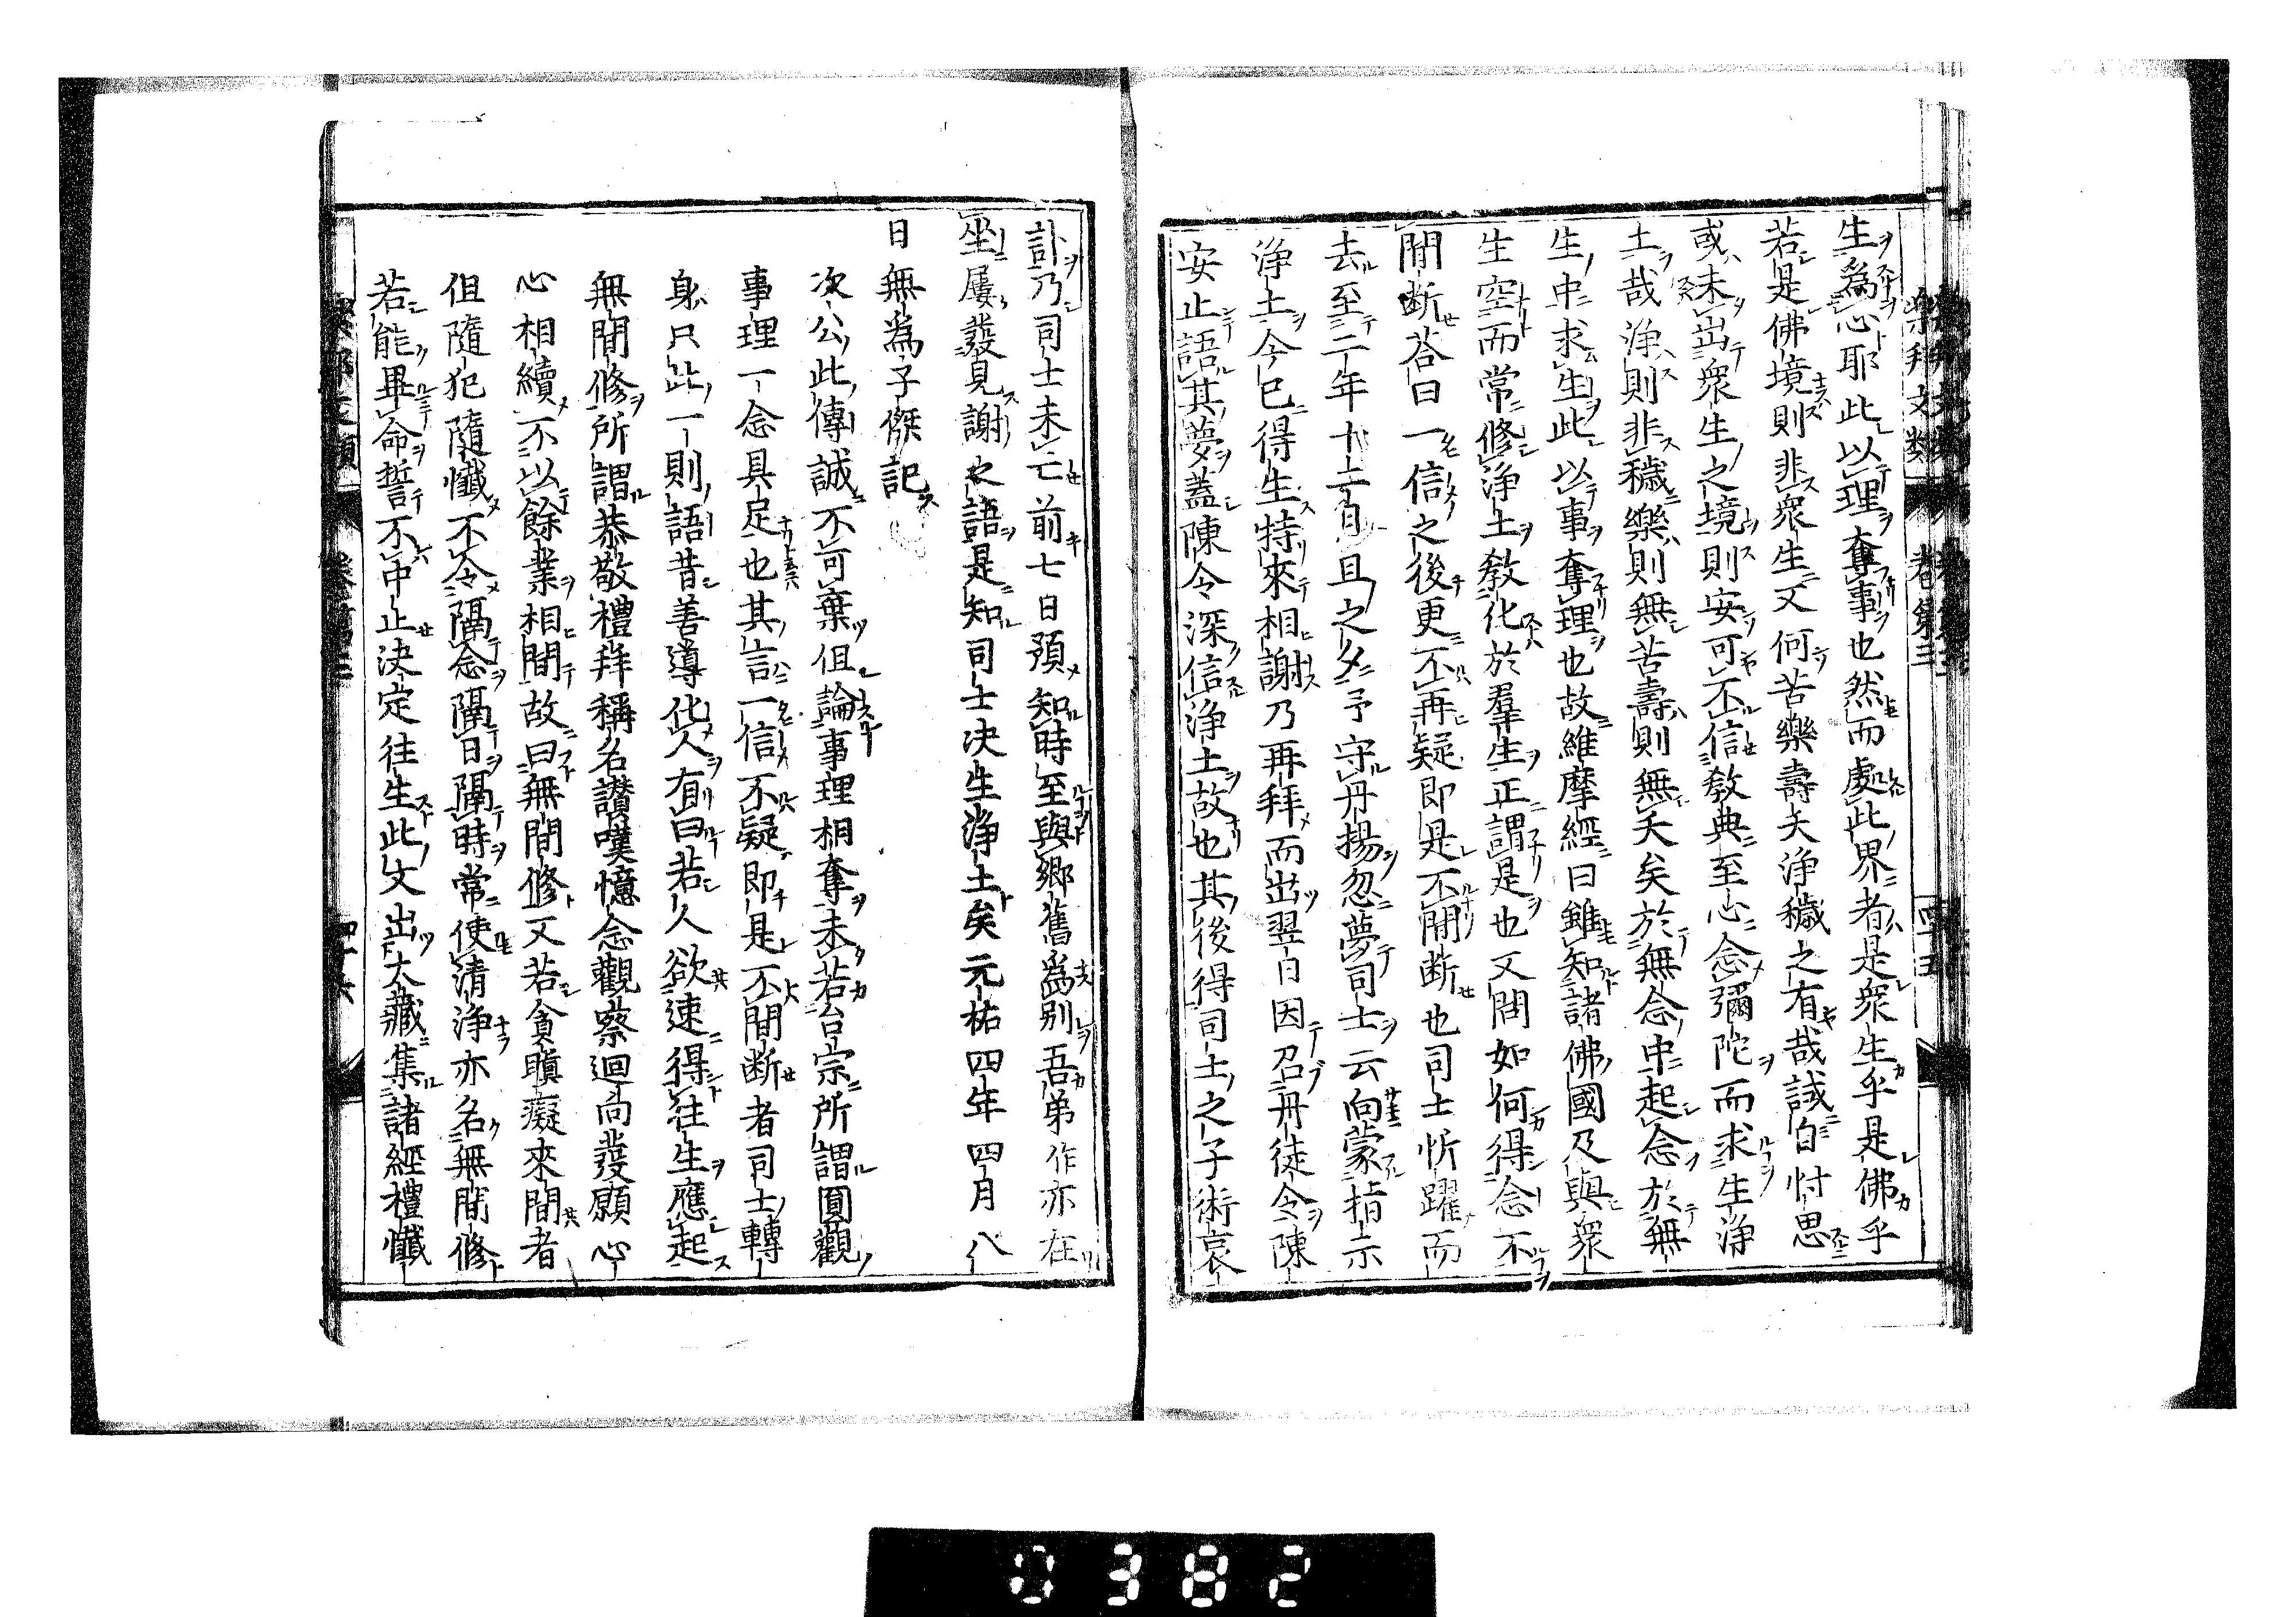 生爲心耶此以理奪事也然而處此界者是衆生乎是佛乎
若是佛境則非衆生又何苦樂壽夭浄穢之有哉誠自忖思
或未出衆生之境則安可不信教典至心念彌陀而求生浄
土哉浄則非穢樂則無苦壽則無夭矣於無念中起念於無
生中求生此以事奪理也故維摩經曰雖知諸佛國及與衆
生空而常修浄土教化於羣生正謂是也又問如何得念不
間断荅曰一信之後更不再疑即是不間断也司士忻躍而
去至二年十二月旦之夕予守丹揚忽夢司士云向蒙指示
浄土今已得生特來相謝乃再拜而出翌日因召丹徒令陳
安止語其夢蓋陳令深信浄土故也其後得司士之子術哀
訃乃司士未亡前七日預知時至與郷舊爲别吾弟作亦在
坐屢發見謝之語是知司士决生浄土矣元祐四年四月八
日無爲子傑記
次公此傳誠不可棄但論事理相奪未若台宗所謂圓觀
事理一念具足也其言一信不疑即是不間断者司士轉
身只此一則語昔善導化人有曰若人欲速得往生應起
無間修所謂恭敬禮拜稱名讃嘆憶念觀察迴向發願心
心相續不以餘業相間故曰無間修又若貪瞋癡來間者
但隨犯隨懺不令隔念隔日隔時常使清浄亦名無間修
若能畢命誓不中止决定往生此文出大藏集諸經禮懺
樂邦文類
卷第三
四十六
0382